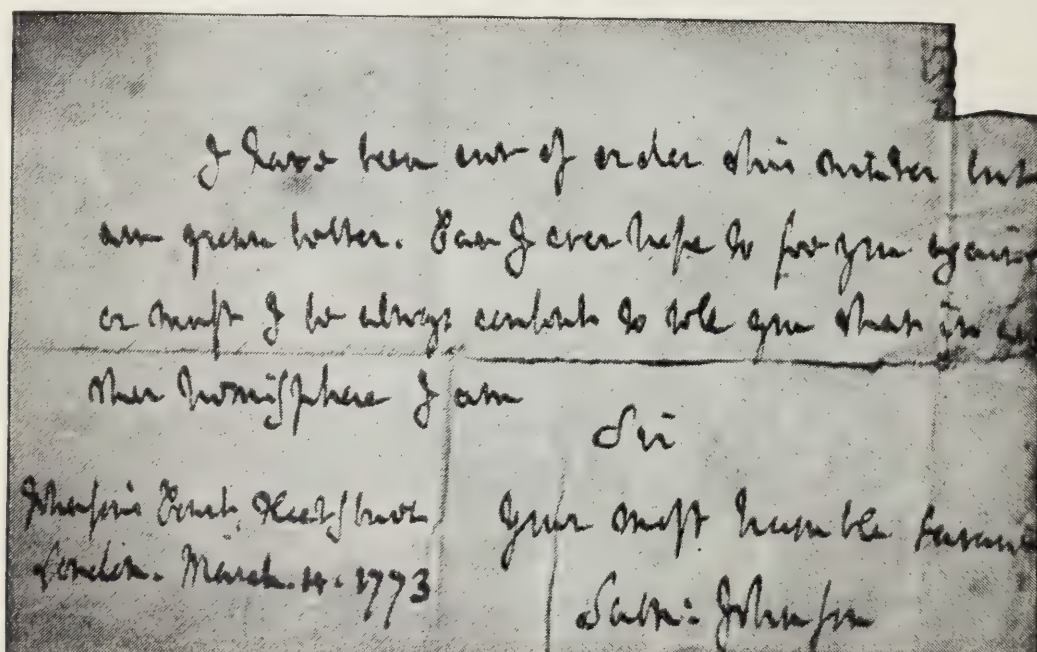 I have been out of order this winter but
am grown better. Can I ever hope to see you again
or must I be always content to tell you that in an
other hemisphere I am
Sir
Your most humble servant
Sam: Johnson
Johnson's Court, Fleetstreet
London. March. 4. 1773